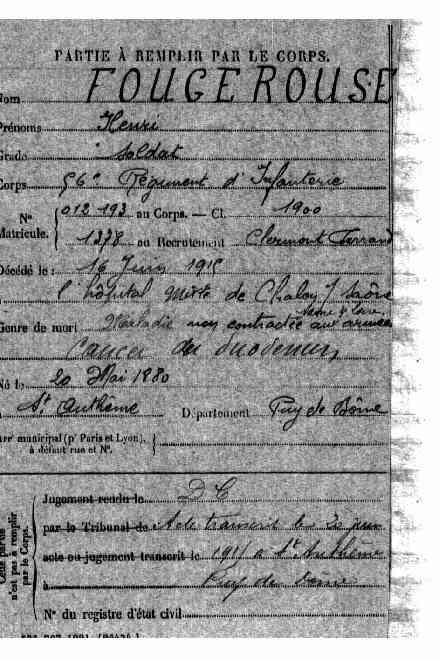 PARTIE À REMPLIR PAR LE CORPS.
Nom FOUGEROUSE
Prénoms Henri
Grade soldat
Corps 56e Régiment d'Infanterie
No Matricule. 012 193 au Corps. — Cl. 1900
1378 au Recrutement Clermont Ferrand
Décédé le 16 Juin 1915
à l'hôpital mixte de Chalon s/ Saône
Saône & Loire
Genre de mort Maladie non contractée aux armées
Cancer du duodenum
Né le 20 Mai 1880
à St Anthème Département Puy de Dôme
Arrt municipal (pr Paris et Lyon), à défaut rue et No.
Cette partie n'est pas à remplir par le Corps.
Jugement rendu le D C
par le Tribunal de Acte transcrit le 30 juin
acte ou jugement transcrit le 1915 à St Anthème
à Puy de Dôme
No du registre d'état civil